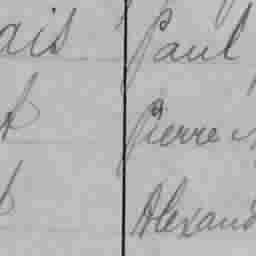 ais Paul
Pierre
Alexand